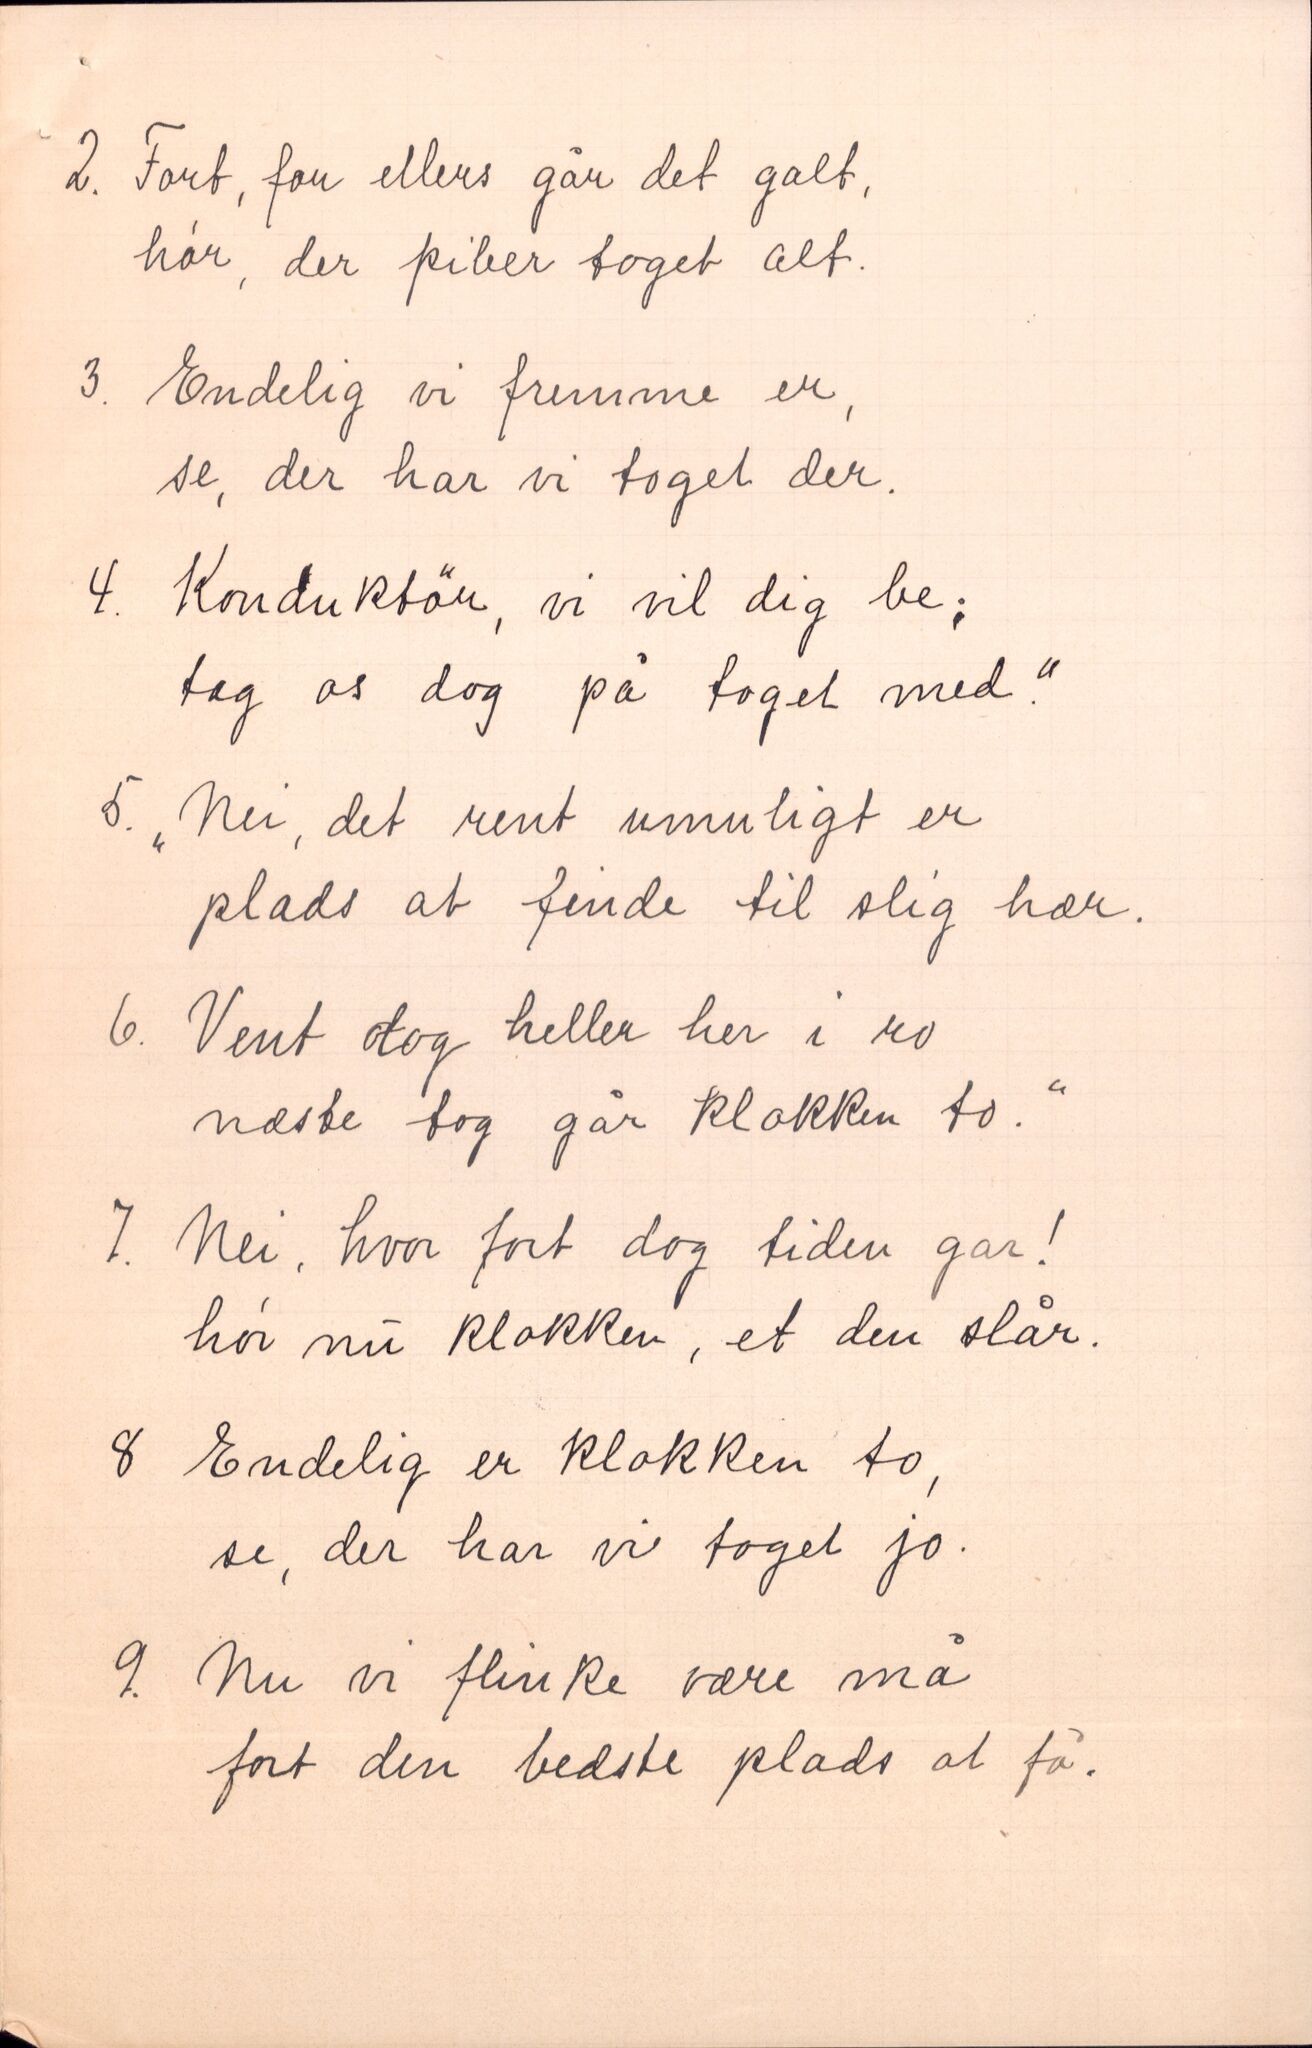 2. Fort, for ellers går det galt,
hór, der piber toget alt.
3. Endelig vi fremme er,
se, der har vi toget der.
4. Konduktör, vi vil dig be;
tag os dog på toget med."
5. „Nei, det rent umuligt er
plads at finde til slig hær.
6. Vent dog heller her i ro
næste tog går klokken to."
7. Nei, hvor fort dog tiden gar!
hór nū klokken, et den slår.
8 Endelig er klokken to,
se, der har vi toget jo.
9. Nu vi flinke være må
fort den bedste plads at få.